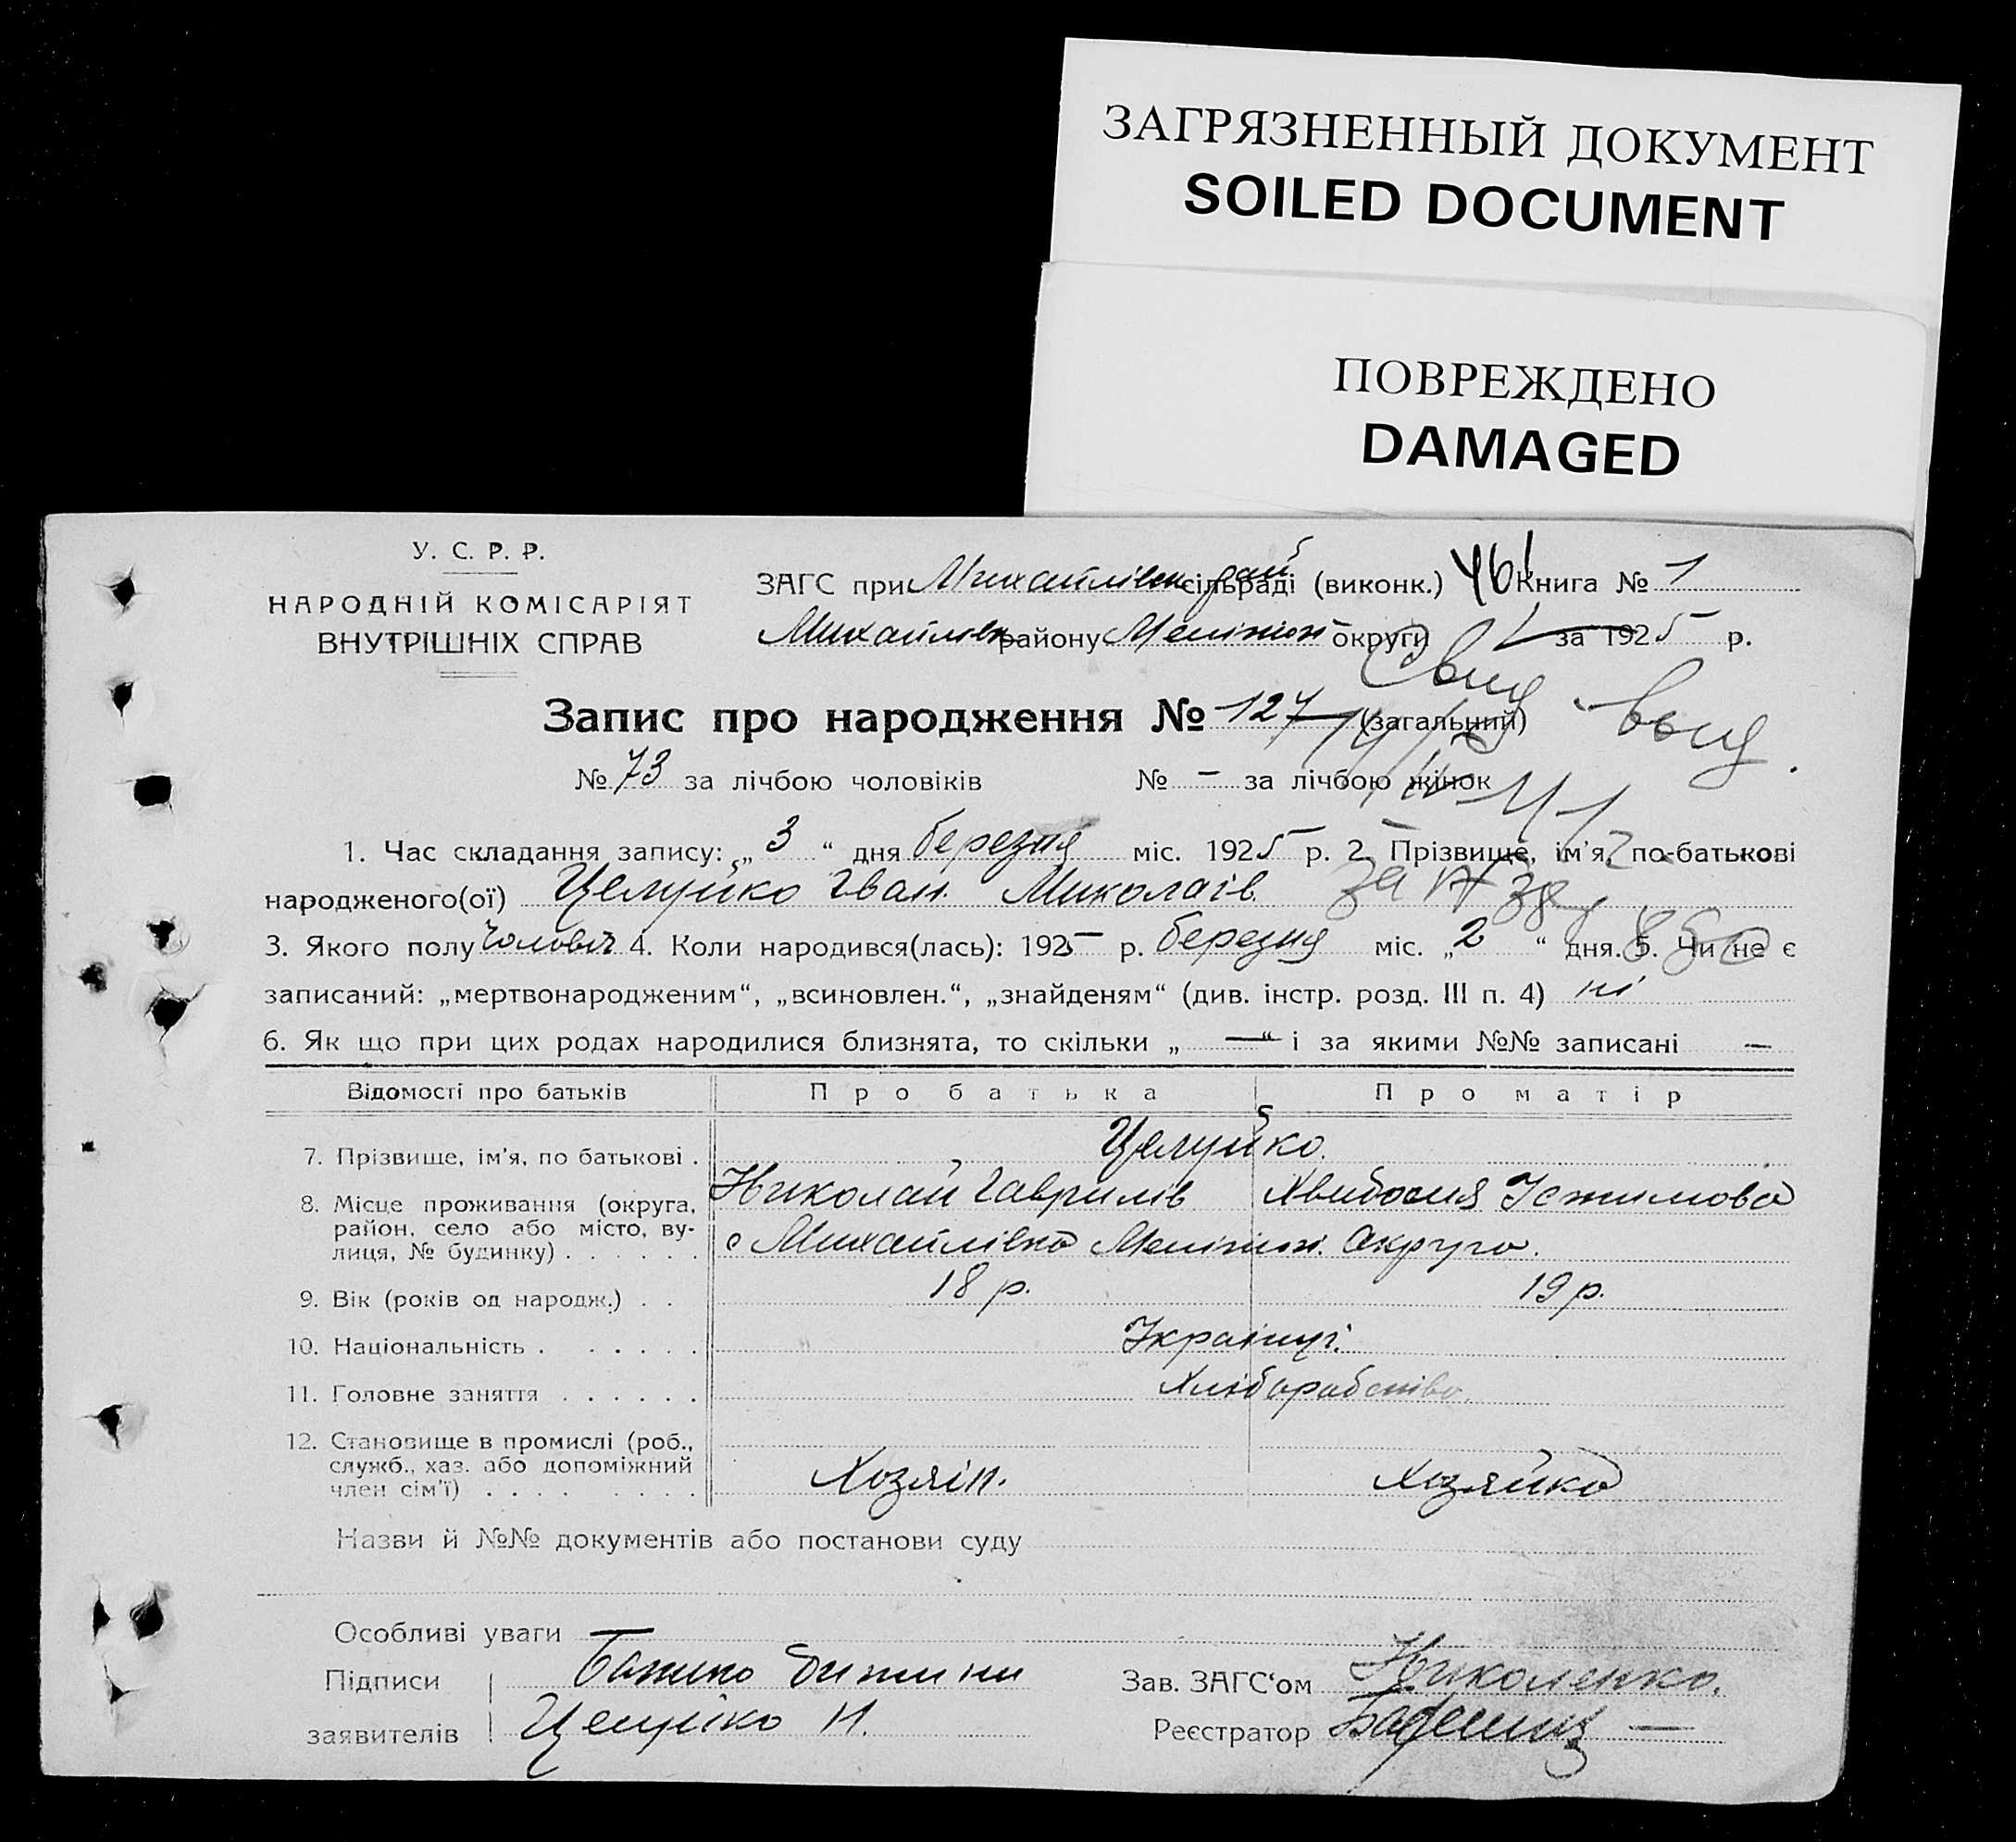 ЗАГРЯЗНЕННЫЙ ДОКУМЕНТ
SOILED DOCUMENT
ПОВРЕЖДЕНО
DAMAGED
У. С. Р. Р.
НАРОДНІЙ КОМІСАРІЯТ
ВНУТРІШНІХ СПРАВ
ЗАГС при Михайлівск сільраді (виконк.) Книга № 1
Михайлівск району Мелітоп округи за 1925 р.
Запис про народження № 127 (загальний)
№ 73 за лічбою чоловіків № – за лічбою жінок
1. Час складання запису: „ 3 “ дня березня міс. 1925 р. 2. Прізвище, ім'я, по-батькові
народженого(ої) Целуйко Іван Миколаів.
3. Якого полу Чоловіч 4. Коли народився(лась): 1925 р. березня міс. „ 2 “ дня. 5. Чи не є
записаний: „мертвонародженим“, „всиновлен.“, „знайденям“ (див. інстр. розд. III п. 4) ні
6. Як що при цих родах народилися близнята, то скільки „ — “ і за якими №№ записані —
Відомості про батьків Про батька Про матір
7. Прізвище, ім'я, по батькові . Целуйко.
Николай Гаврилів
8. Місце проживання (округа, район, село або місто, вулиця, № будинку) с Михайлівка Мелітоп. Округа.
9. Вік (років од народж.) . . 18 р. 19 р.
10. Національність . . . . . . Українці.
11. Головне заняття . . . . . . Хліборобство.
12. Становище в промислі (роб.,
служб., хаз. або допоміжний
член сім'ї) . . . . . . . . Хозяін. Хозяйка
Назви й №№ документів або постанови суду
Особливі уваги
Підписи Батько дитини Зав. ЗАГС‘ом Николенко.
заявителів Целуйко Н. Реєстратор